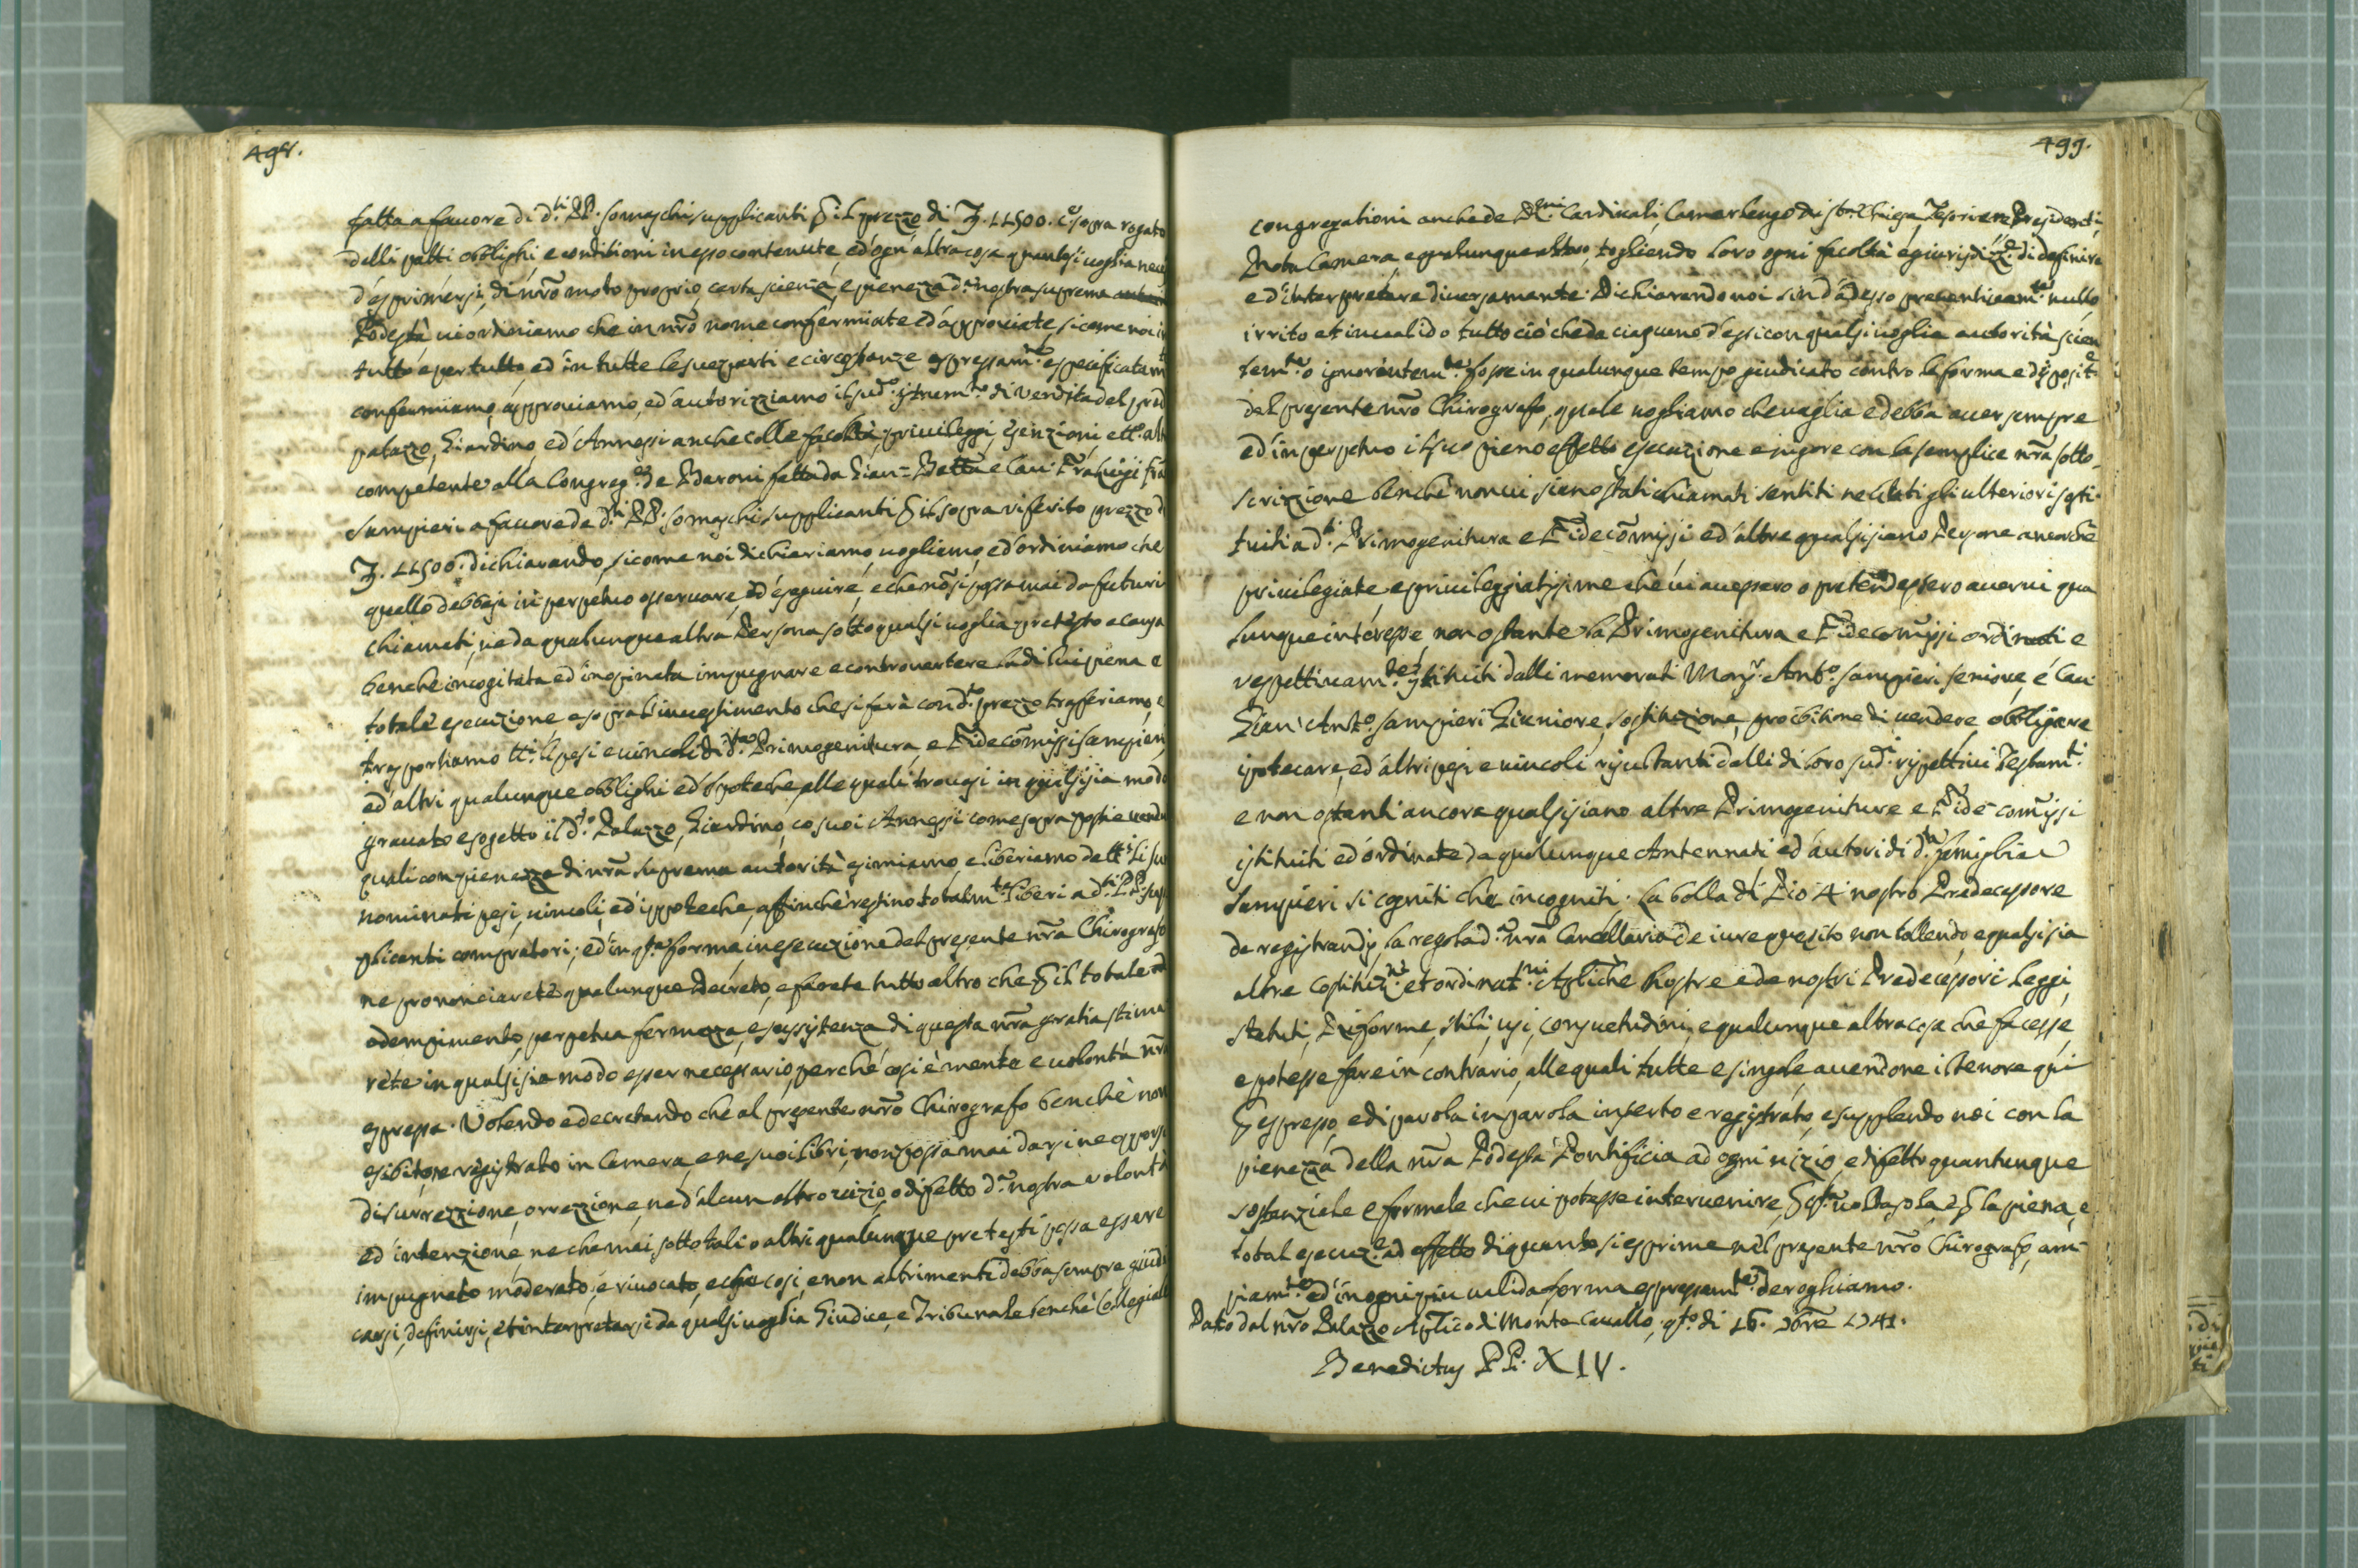 498.
fatta a favore di d.ti PP. Somaschi supplicanti p il prezzo di 11500. co sopra rogato
delli patti obblighi, e conditioni in esso contenute, ed ogn'altra cosa quantsivoglia
d'esprimersi, di nro moto proprio, certa scienza, e pienezza d.a nostra suprema
Podestà vi ordiniamo che in nro nome confermiate ed approviate, sicome noi in
tutto e per tutto, ed in tutte le sue parti e circostanze espressam.te e specificatam
confermiamo, approviamo, ed autorizziamo il sud.o istrum.to di vendita del pred
palazzo, Giardino, ed Annessi anche colle facoltà, privileggi, esenzioni, ett.o alt
competente alla Congreg.e de Baroni fatta da Gian=Batta e Cav: Fra Luigi fra
Sampieri a favore de d.ti PP. Somaschi supplicanti p il sopra riferito prezzo d
11500. dichiarando, sicome noi dichiariamo, vogliamo, ed ordiniamo che
quello debbasi in perpetuo osservare, ed eseguire, e che nō si possa mai da futuri
chiamati, ne da qualunque altra Persona sotto qualsivoglia pretesto e causa
benche incogitata ed inopinata impugnare e controvertere la di lui piena e
totale esecuzione, e sopra l'investimento che si farà con d.to prezzo trasferiamo, e
trasportiamo tt.i li pesi e vincoli di d.ta Primogenitura, e Fidecōmissi Sampieri
ed altri qualunque obblighi ed Ipoteche, alle quali trovasi in qualsisia modo
gravato e sogetto il d.to Palazzo, Giardino, co suoi Annessi come sopra posti e vend
quali con pienezza di nrā suprema autorità esimiamo, e liberiamo dalli
nominati pesi, vincoli, ed ippoteche, affinche restino totalm.te liberi a d.ti PP. sup
plicanti compratori; ed in q.sta forma in esecuzione del presente nrō Chirografo
ne prononciarete qualunque Decreto, e farete tutto altro che p il totale
adempimento, perpetua fermezza, e sussistenza di questa nrā gratia stima
rete in qualsisia modo esser necessario, perche così è mente e volontà nrā
espressa. Volendo e decretando che al presente nrō Chirografo benchè non
esibito, ne registrato in Camera, e ne suoi libri, non possa mai darsi ne opporsi
di surrezzione, orrezzione, ne d'alcun altro vizio, o difetto d.a nostra volontà
ed intenzione, ne che mai, sotto tali o altri qualunque pretesti possa essere
impugnato moderato, e rivocato, e che così, e non altrimenti debba sempre giudi
carsi, definirsi, et interpretarsi da qualsivoglia Giudice, e Tribunale benchè Collegiale
499.
congregationi anche de R.mi Cardinali, Camerlengo di Chiesa, Tesoriere, Presidenti,
Rota Camera, e qualunque altro, togliendo loro ogni facoltà e giurisdizz.e di definire
ed interpretare diversamente. Dichiarando noi sin d'adesso preventivam.te nullo
irrito et invalido tutto ciò che da ciascuno d'essi con qualsivoglia autorità scien
tem.te o ignorantem.te fosse in qualunque tempo giudicato contro la forma e disposit.e
del presente nrō Chirografo, quale vogliamo che vaglia e debba aver sempre
ed in perpetuo il suo pieno effetto esecuzione e vigore con la semplice nrā sotto-
scrizzione benchè non vi sieno stati chiamati sentiti ne citati gli ulteriori sosti
tuiti a d.ta Primogenitura e Fidecōmissi ed altre qualsisiano Persone ancorchè
privilegiate, e privileggiatissime che vi avessero o pretendessero avervi qua
lunque interesse, non ostante la Primogenitura e Fidecommissi ordinati e
respettivam.te istituiti dalli memorati Mons.r Ant.o Sampieri seniore, e Cav
Gian' Ant.o Sampieri Giuniore, sostituzione, proibitione di vendere, obbligare
ipotecare, ed altri pesi e vincoli risultanti dalli di loro sud.i rispettivi Testam.ti
e non ostanti ancora qualsisiano altre Primogeniture e Fide=commissi
istituiti ed ordinate da qualunque Antennati ed autori di d.ta famiglia
Sampieri si cogniti che incogniti. La bolla di Pio 4 nostro Predecessore
de registrandis, la regola d.a nrā Cancellaria de iure quesito non tollendo, e qualsisia
altre Costituz.ni et ordinat.ni Aplīche nostre e de nostri Predecessori leggi,
statuti, Riforme, stili, usi, consuetudini, e qualunque altra cosa che facesse,
e potesse fare in contrario, alle quali tutte e singole, avendone il tenore qui
p espresso, e di parola in parola inserto e registrato, e supplendo noi con la
pienezza della nrā Podestà Pontificia ad ogni vizio, e difetto quantunque
sostanziale e formale che vi potesse intervenire, p q.sta volta sola, e p la piena, e
total esecuz.e ad effetto di quanto si esprime nel presente nrō Chirografo, am-
piam.te ed in ogni più valida forma espressam.te deroghiamo.
Dato dal nrō Palazzo Aplīco di Monte Cavallo, q.sto di 16. 1741.
Benedictus PP. XIV.